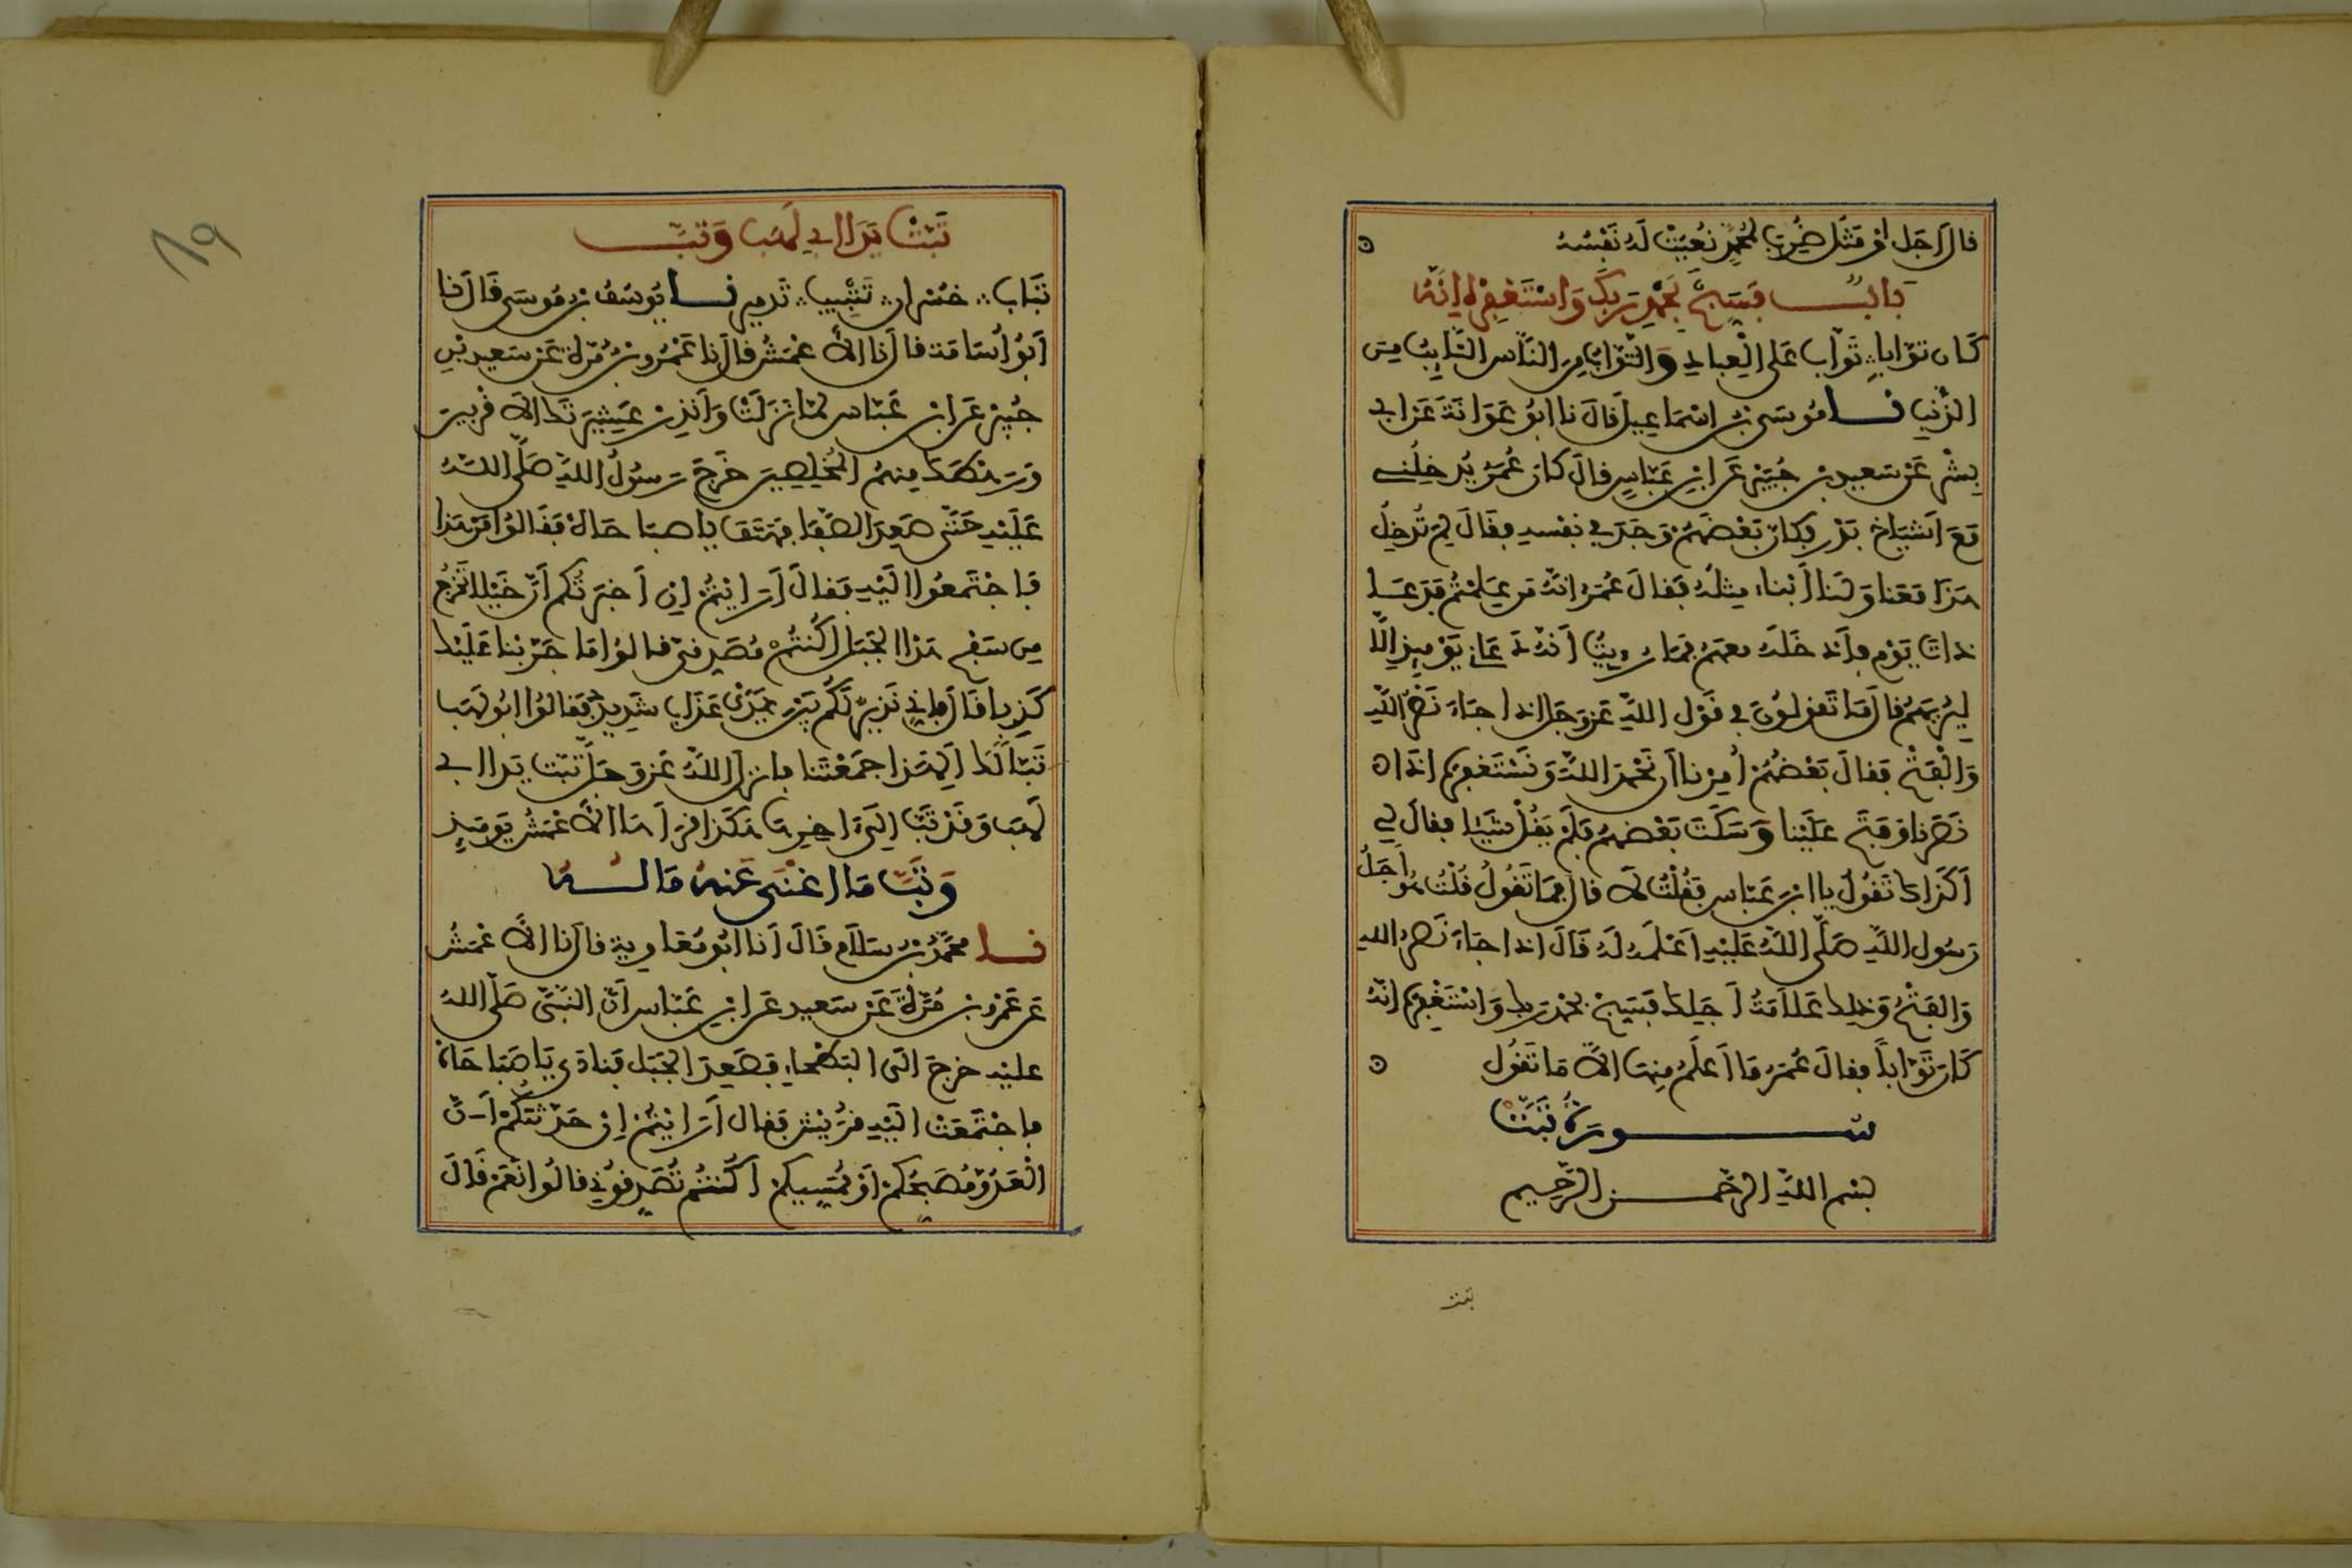 قال اجل او مثل ضرب لمحمد نعيت له نفسه
باب فسبح بحمد ربك واستغفره انه
كان توابا تواب على العباد والتواب من الناس التايب من
الذنب نا موسى بن اسماعيل قال نا ابو عوانة عن ابي
بشر عن سعيد بن جبير عن ابن عباس قال كان عمر يدخلني
مع اشياخ بدر فكان بعضهم وجد في نفسه فقال لم تدخل
هذا معنا ولنا ابناء مثله فقال عمر انه من علمتم فدعا
ذات يوم فادخله معهم فما رويت انه دعاني يوميذ الا
ليريهم قال ما تقولون في قول الله عز وجل اذا جاء نصر الله
والفتح فقال بعضهم امرنا ان نحمد الله ونستغفره اذا
نصرنا وفتح علينا وسكت بعضهم فلم يقل شيا فقال لي
اكذاك تقول يا ابن عباس فقلت لا قال فما تقول قلت هو اجل
رسول الله صلى الله عليه اعلمه له قال اذا جاء نصر الله
والفتح وذلك علامة اجلك فسبح بحمد ربك واستغفره انه
كان توابا فقال عمر ما اعلم منها الا ما تقول
سورة تبت
بسم الله الرحمن الرحيم
تبت
تبت يدا ابي لهب وتب
تباب خسران تتبيب تدمير نا يوسف بن موسى قال نا
ابو اسامة قال نا الاعمش قال نا عمرو بن مرة عن سعيد بن
جبير عن ابن عباس لما نزلت وانذر عشيرتك الاقربين
ورهطك منهم المخلصين خرج رسول الله صلى الله
عليه حتى صعد الصفا فهتف يا صباحاه فقالوا من هذا
فاجتمعوا اليه فقال ارايتم ان اخبرتكم ان خيلا تخرج
من سفح هذا الجبل اكنتم مصدقي قالوا ما جربنا عليك
كذبا قال فاني نذير لكم بين يدي عذاب شديد فقالوا ابو لهب
تبا لك الهذا جمعتنا فانزل الله عز وجل تبت يدا ابي
لهب وقد تب الى اخرها هكذا قرا ها الاعمش يوميذ
وتب ما اغنى عنه ماله
نا محمد بن سلام قال انا ابو معاوية قال نا الاعمش
عن عمرو بن مرة عن سعيد عن ابن عباس ان النبي صلى الله
عليه خرج الى البطحاء فصعد الجبل فنادى يا صباحاه
فاجتمعت اليه قريش فقال ارايتم ان حدثتكم ان
العدو مصبحكم او ممسيكم اكنتم تصدقوني قالوا نعم قال